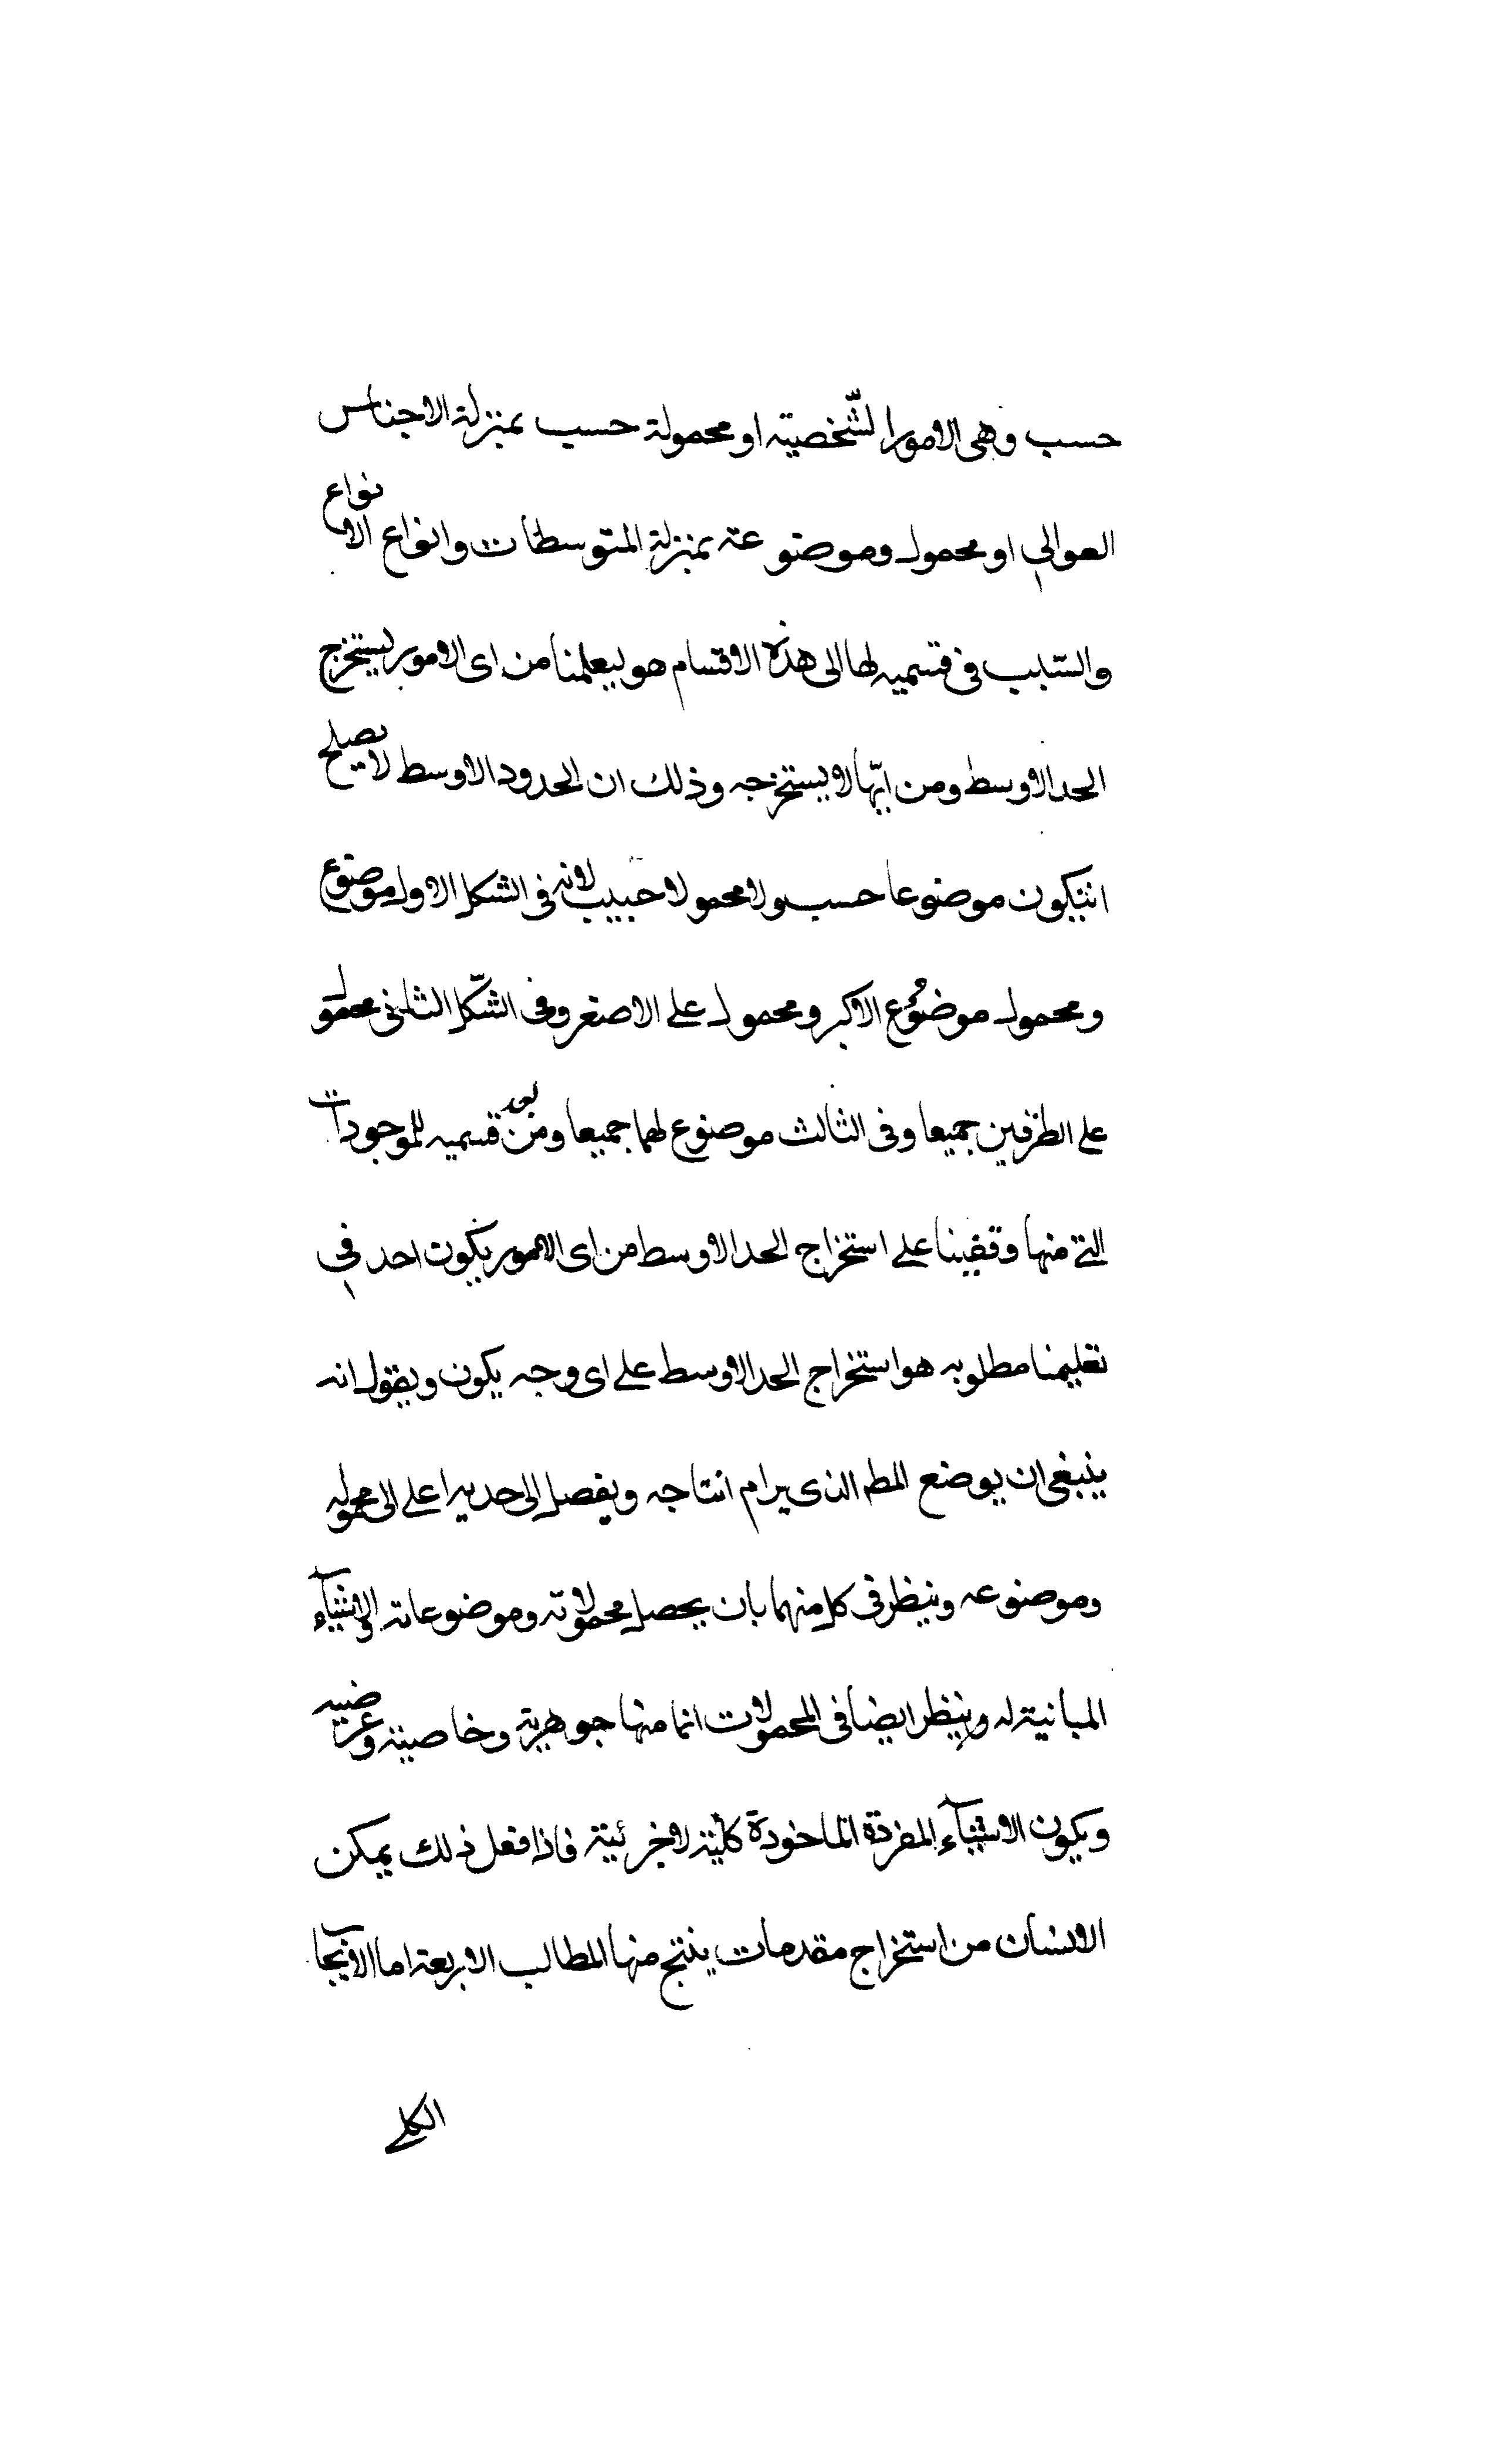 حسب وهى الامور الشّخصية او محمولة حسب بمنزلة الاجناس
العوالى او محمولـ وموضوعة بمنزلة المتوسطات وانواع الانواع
والسّبب فى قسميه لها الى هذه الاقسام هو ليعلمنا من اى الامور يستخرج
الحد الاوسط ومن ايّها لا يستخرجه وذلك ان الحدود الاوسط لا يصلح
ان يكون موضوعا حسب ولا محمولا حسب لانه فى الشكل الاول موضوع
ومحمول موضوع الاكبر ومحمول على الاصغر وفى الشّكل الثانى محمول
على الطرفين جميعا وفى الثالث موضوع لهما جميعا ومن بعد قسميه للموجودات
التى منها وقفينا على استخراج الحد الاوسط من اى الامور يكون احد فى
تعليمنا مطلوبه هو استخراج الحد الاوسط على اى وجه يكون ويقول انه
ينبغى ان يوضع المط الذى يرام انتاجه ويفصل الى حديه اعلى الى محموله
وموضوعه وينظر فى كل منهما بان يحصل محمولاته وموضوعاته والاشيآء
المبانية له وينظر ايضا فى المحمولات انما منها جوهرية وخاصية وعرضيه
ويكون الاشيآء المفردة الماخوذة كليّة لا جزئية فاذا فعل ذلك يمكن
الانسان من استخراج مقدمات ينتج منها المطالب الاربعة اما الايجاب
الكلى